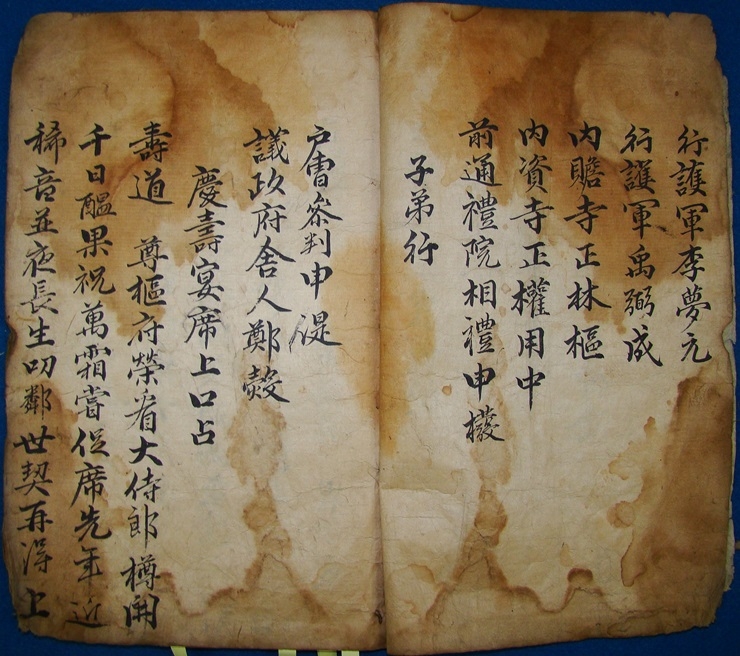 行護軍李夢元
行護軍禹弼成
內贍寺正林樞
內資寺正權用中
前通禮院相禮申撥
子弟行
戶曹參判申湜
議政府舍人鄭縠
慶壽宴席上口占
壽道 尊樞府榮看大侍郎樽開
千日醞果祝萬霜嘗促席先年近
稀音並夜長生叨鄰世契再淂上